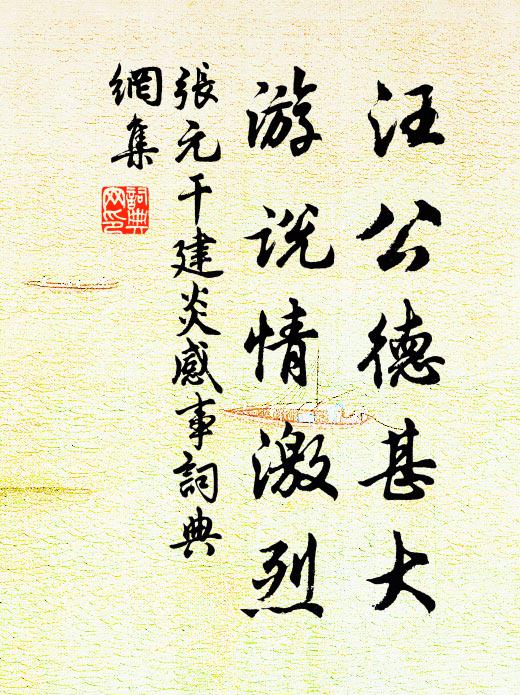 汪公德甚大
游说情激烈
張元干建炎感事詞典
網集
詞典
网印